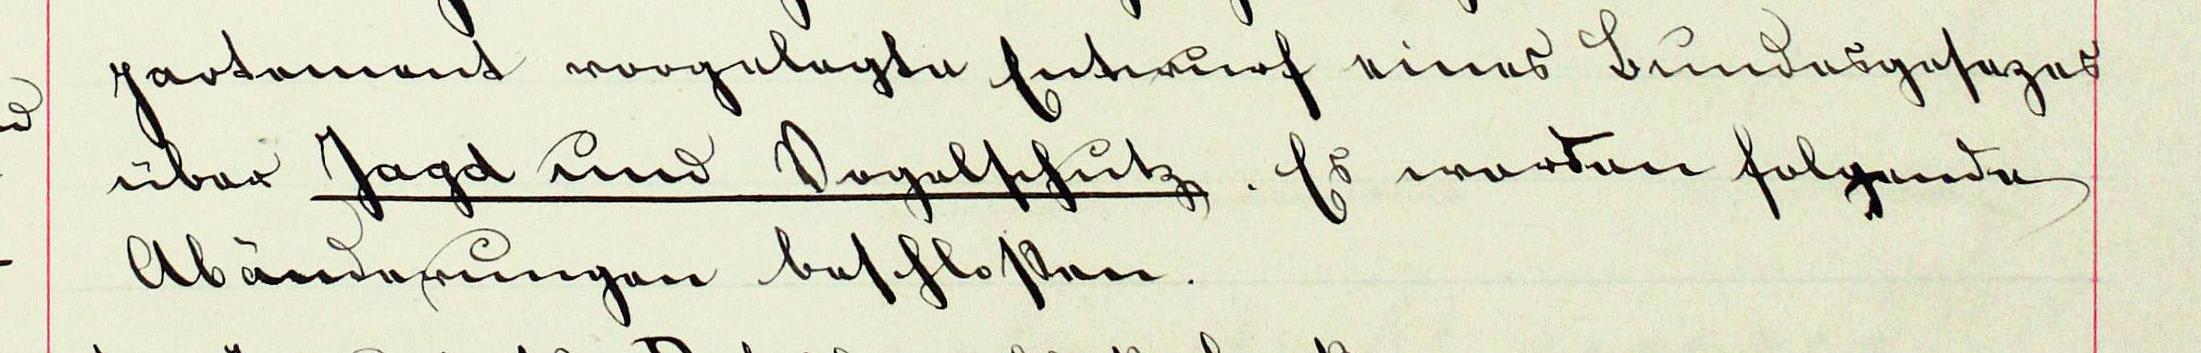 partement vorgelegte Entwurf eines Bundesgesezes
über Jagd und Vogelschutz. Es werden folgende
Abänderungen beschloßen.